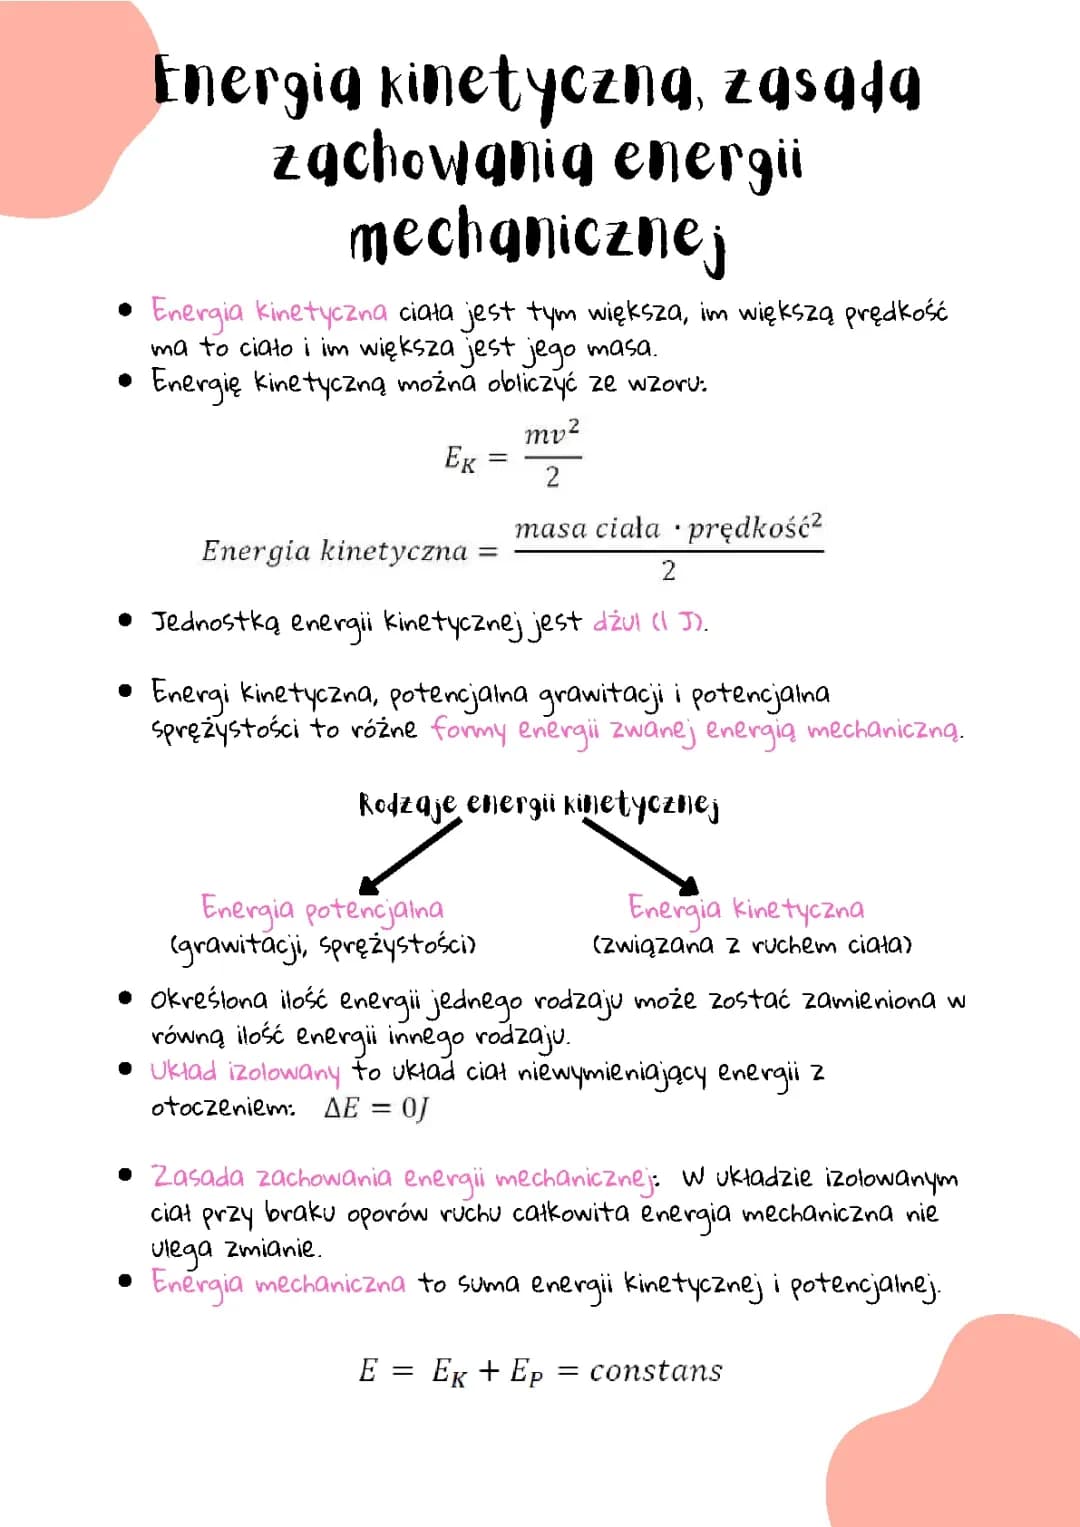 Energia kinetyczna, zasada
zachowania energii
mechanicznej
• Energia kinetyczna ciała jest tym większa, im większą prędkość
ma to ciało i im większa jest jego masa.
• Energię kinetyczną można obliczyć ze wzoru:
E_K = mv²/2
Energia kinetyczna = masa ciała · prędkość²/2
• Jednostką energii kinetycznej jest dżul (1 J).
• Energi kinetyczna, potencjalna grawitacji i potencjalna
sprężystości to różne formy energii zwanej energią mechaniczną.
Rodzaje energii kinetycznej
Energia potencjalna Energia kinetyczna
(grawitacji, sprężystości) (związana z ruchem ciała)
• Określona ilość energii jednego rodzaju może zostać zamieniona w
równą ilość energii innego rodzaju.
• Układ izolowany to układ ciał niewymieniający energii z
otoczeniem: ΔE = 0J
• Zasada zachowania energii mechanicznej: W układzie izolowanym
ciał przy braku oporów ruchu całkowita energia mechaniczna nie
ulega zmianie.
• Energia mechaniczna to suma energii kinetycznej i potencjalnej.
E = E_K + E_P = constans